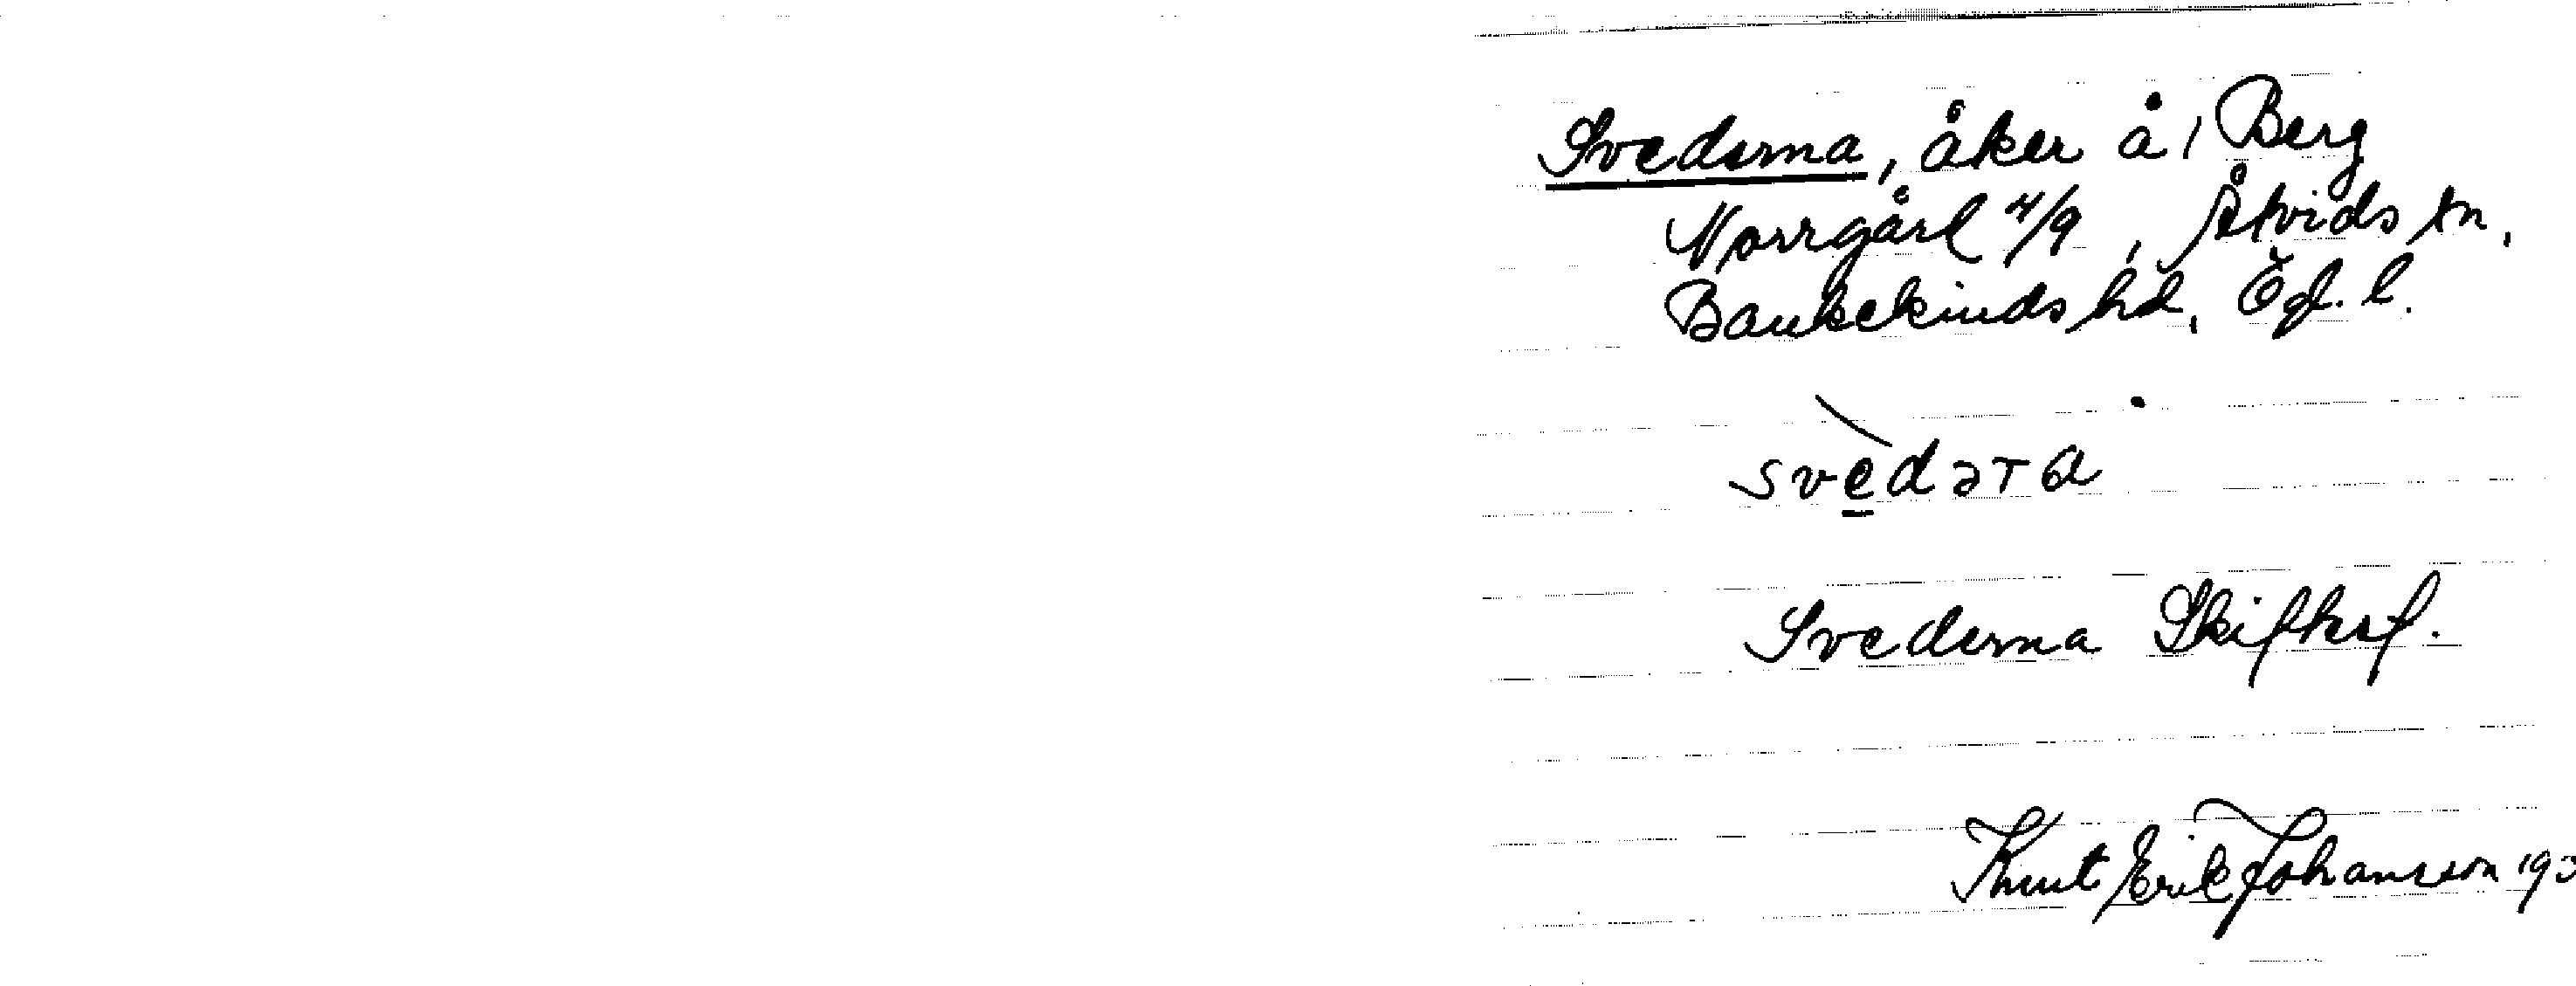 Svederna, åker å 1 Berg
Norrgård 4/9, Åtvids sn.
Bankekinds hd, Ög. l.
svedəra
Svederna Skifksf.
Knut Erik Johansson 193